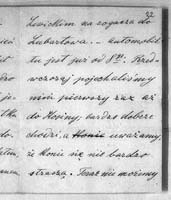 22
Lewickim na rogacza do
Lubartowa... automobil
tu jest już od 8ej. Przed
wczoraj pojechaliśmy
nim pierwszy raz aż
do Kośiny; bardzo dobrze
chodzi, a konie uważamy
że konie się nie bardzo
straszą. Teraz nie możemy